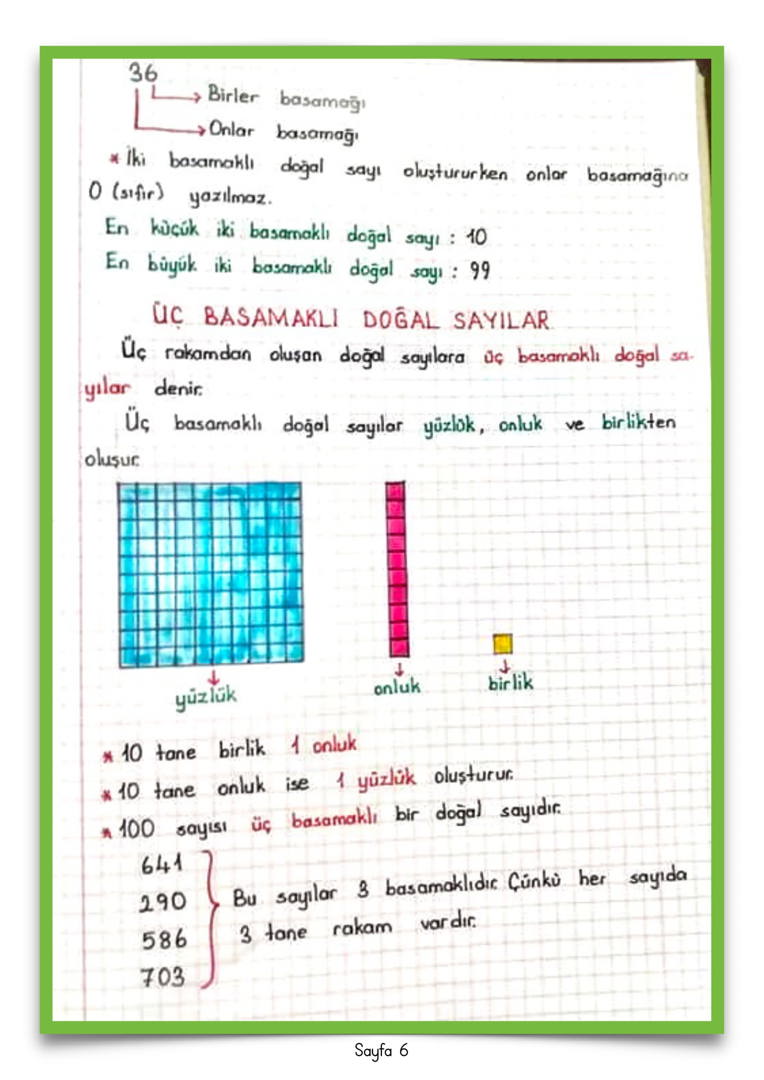 36
Birler basamağı
Onlar basamağı
* İki basamaklı doğal sayı oluştururken onlar basamağına
0 (sıfır) yazılmaz.
En küçük iki basamaklı doğal sayı : 10
En büyük iki basamaklı doğal sayı : 99
ÜÇ BASAMAKLI DOĞAL SAYILAR
Üç rakamdan oluşan doğal sayılara üç basamaklı doğal sa-
yılar denir.
Üç basamaklı doğal sayılar yüzlük, onluk ve birlikten
oluşur.
yüzlük
onluk
birlik
* 10 tane birlik 1 onluk
* 10 tane onluk ise 1 yüzlük oluşturur.
* 100 sayısı üç basamaklı bir doğal sayıdır.
641
290
586
703
Bu sayılar 3 basamaklıdır. Çünkü her sayıda
3 tane rakam vardır.
Sayfa 6